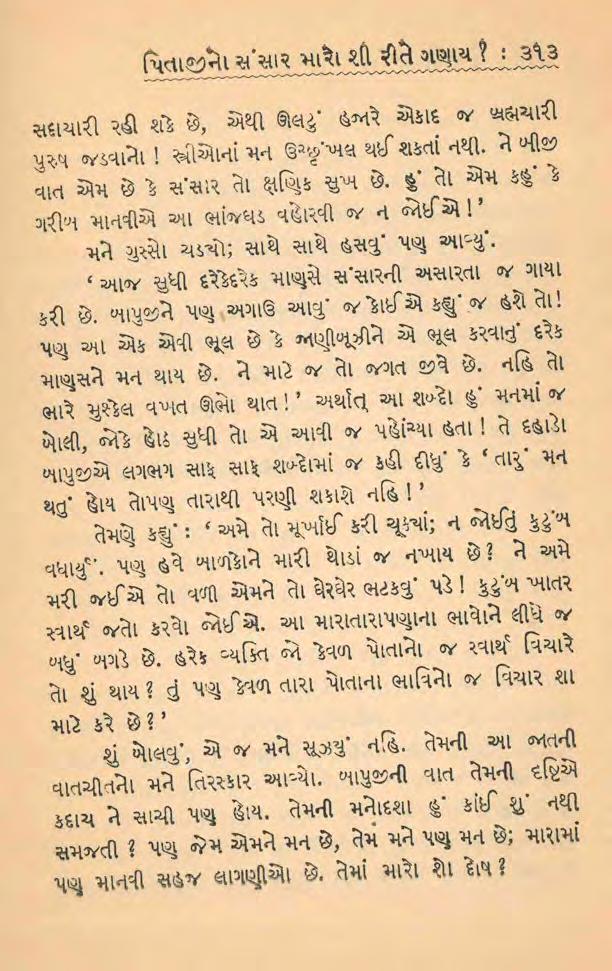 પિતાજીનો સંસાર મારો શી રીતે ગણાય? : ૩૧૩
સદાચારી રહી શકે છે, એથી ઊલટું હજારે એકાદ જ બ્રહ્મચારી
પુરુષ જડવાનો! સ્ત્રીઓનાં મન ઉચ્છૃંખલ થઈ શકતાં નથી. ને બીજી
વાત એમ છે કે સંસાર તો ક્ષણિક સુખ છે. હું તો એમ કહું કે
ગરીબ માનવીએ આ ભાંજઘડ વહોરવી જ ન જોઈએ!’
મને ગુસ્સો ચડ્યો; સાથે સાથે હસવું પણ આવ્યું.
‘આજ સુધી દરેકેદરેક માણસે સંસારની અસારતા જ ગાયા
કરી છે. બાપુજીને પણ અગાઉ આવું જ કોઈએ કહ્યું જ હશે તો!
પણ આ એક એવી ભૂલ છે કે જાણીબૂઝીને એ ભૂલ કરવાનું દરેક
માણસને મન થાય છે. ને માટે જ તો જગત જીવે છે. નહિ તો
ભારે મુશ્કેલ વખત ઊભો થાત!’ અર્થાત્ આ શબ્દો હું મનમાં જ
બોલી, જોકે હોઠ સુધી તો એ આવી જ પહોંચ્યા હતા! તે દહાડો
બાપુજીએ લગભગ સાફ સાફ શબ્દોમાં જ કહી દીધું કે ‘તારું મન
થતું હોય તોપણ તારાથી પરણી શકાશે નહિ!’
તેમણે કહ્યું: ‘અમે તો મૂર્ખાઈ કરી ચૂક્યાં; ન જોઈતું કુટુંબ
વધાર્યું. પણ હવે બાળકોને મારી થોડાં જ નખાય છે? ને અમે
મરી જઈએ તો વળી એમને તો ઘેરઘેર ભટકવું પડે! કુટુંબ ખાતર
સ્વાર્થ જતો કરવો જોઈએ. આ મારાતારાપણાના ભાવોને લીધે જ
બધું બગડે છે. હરેક વ્યક્તિ જો કેવળ પોતાનો જ સ્વાર્થ વિચારે
તો શું થાય? તું પણ કેવળ તારા પોતાના ભાવિનો જ વિચાર શા
માટે કરે છે?’
શું બોલવું, એ જ મને સૂઝ્યું નહિ. તેમની આ જાતની
વાતચીતનો મને તિરસ્કાર આવ્યો. બાપુજીની વાત તેમની દૃષ્ટિએ
કદાચ ને સાચી પણ હોય. તેમની મનોદશા હું કાંઈ શું નથી
સમજતી? પણ જેમ એમને મન છે, તેમ મને પણ મન છે; મારામાં
પણ માનવી સહજ લાગણીઓ છે. તેમાં મારો શો દોષ?